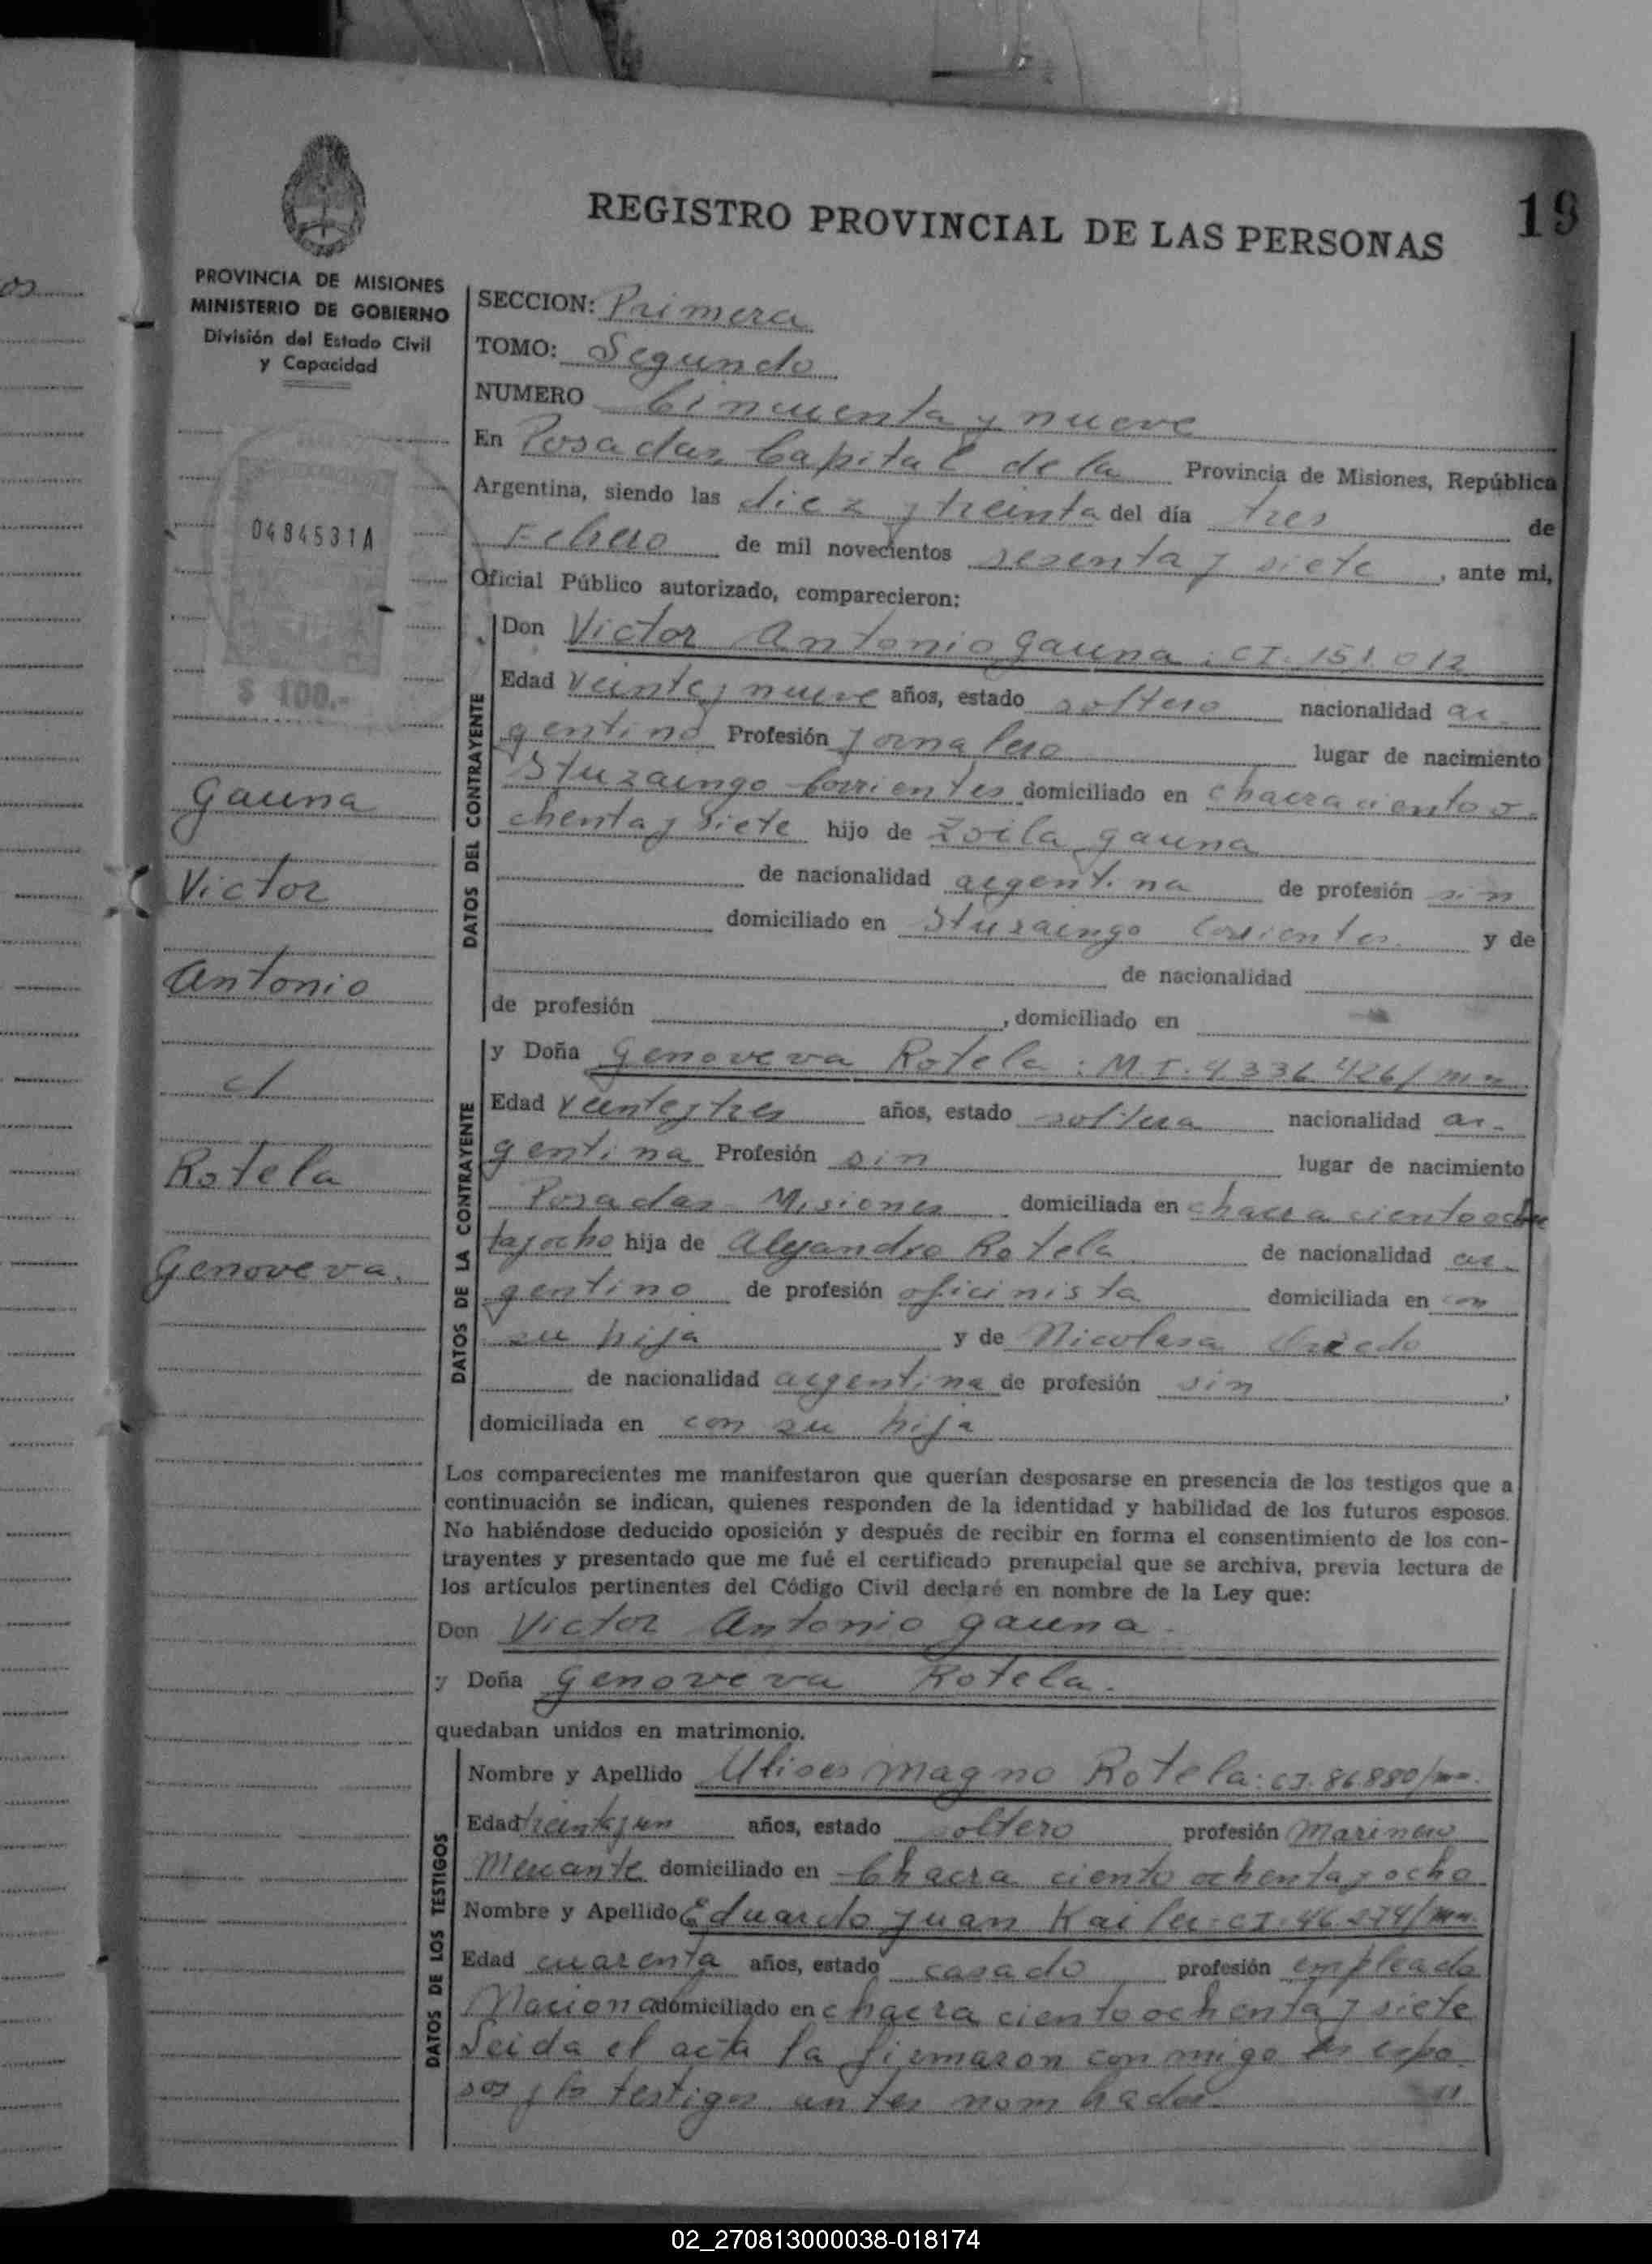 19
REGISTRO PROVINCIAL DE LAS PERSONAS
PROVINCIA DE MISIONES
MINISTERIO DE GOBIERNO
División del Estado Civil
y Capacidad
0484531A
$ 100.-
Gauna
Victor
Antonio
c/
Rotela
Genoveva.
SECCION: Primera
TOMO: Segundo
NUMERO Cincuenta y nueve
En Posadas, Capital de la Provincia de Misiones, República
Argentina, siendo las diez y treinta del día tres de
Febrero de mil novecientos sesenta y siete, ante mi,
Oficial Público autorizado, comparecieron:
DATOS DEL CONTRAYENTE
Don Victor Antonio Gauna: CI. 151.012
Edad veinte y nueve años, estado soltero nacionalidad ar-
gentino Profesión Jornalero lugar de nacimiento
Ituzaingo Corrientes domiciliado en chacra ciento o-
chenta y siete hijo de Zoila Gauna
de nacionalidad argentina de profesión sin
domiciliado en Ituzaingo Corrientes y de
de nacionalidad
de profesión , domiciliado en
DATOS DE LA CONTRAYENTE
y Doña Genoveva Rotela: M.I. 4.336.426/mn
Edad veinte y tres años, estado soltera nacionalidad ar-
gentina Profesión sin lugar de nacimiento
Posadas Misiones domiciliada en chacra ciento ochen
ta y ocho hija de Alejandro Rotela de nacionalidad ar-
gentino de profesión oficinista domiciliada en con
su hija y de Nicolasa
de nacionalidad argentina de profesión sin,
domiciliada en con su hija
Los comparecientes me manifestaron que querían desposarse en presencia de los testigos que a
continuación se indican, quienes responden de la identidad y habilidad de los futuros esposos.
No habiéndose deducido oposición y después de recibir en forma el consentimiento de los con-
trayentes y presentado que me fué el certificado prenupcial que se archiva, previa lectura de
los artículos pertinentes del Código Civil declaré en nombre de la Ley que:
Don Victor Antonio Gauna.
y Doña Genoveva Rotela.
quedaban unidos en matrimonio.
DATOS DE LOS TESTIGOS
Nombre y Apellido Ulises Magno Rotela: CI. 86.880/mn.
Edad treinta y un años, estado soltero profesión Marinero
Mercante domiciliado en Chacra ciento ochenta y ocho
Nombre y Apellido Eduardo Juan Kailer: CI. 46.274/mn.
Edad cuarenta años, estado casado profesión empleado
Nacional domiciliado en chacra ciento ochenta y siete
Leida el acta la firmaron con migo los espo-
sos y los testigos antes nombrados.
02_270813000038-018174